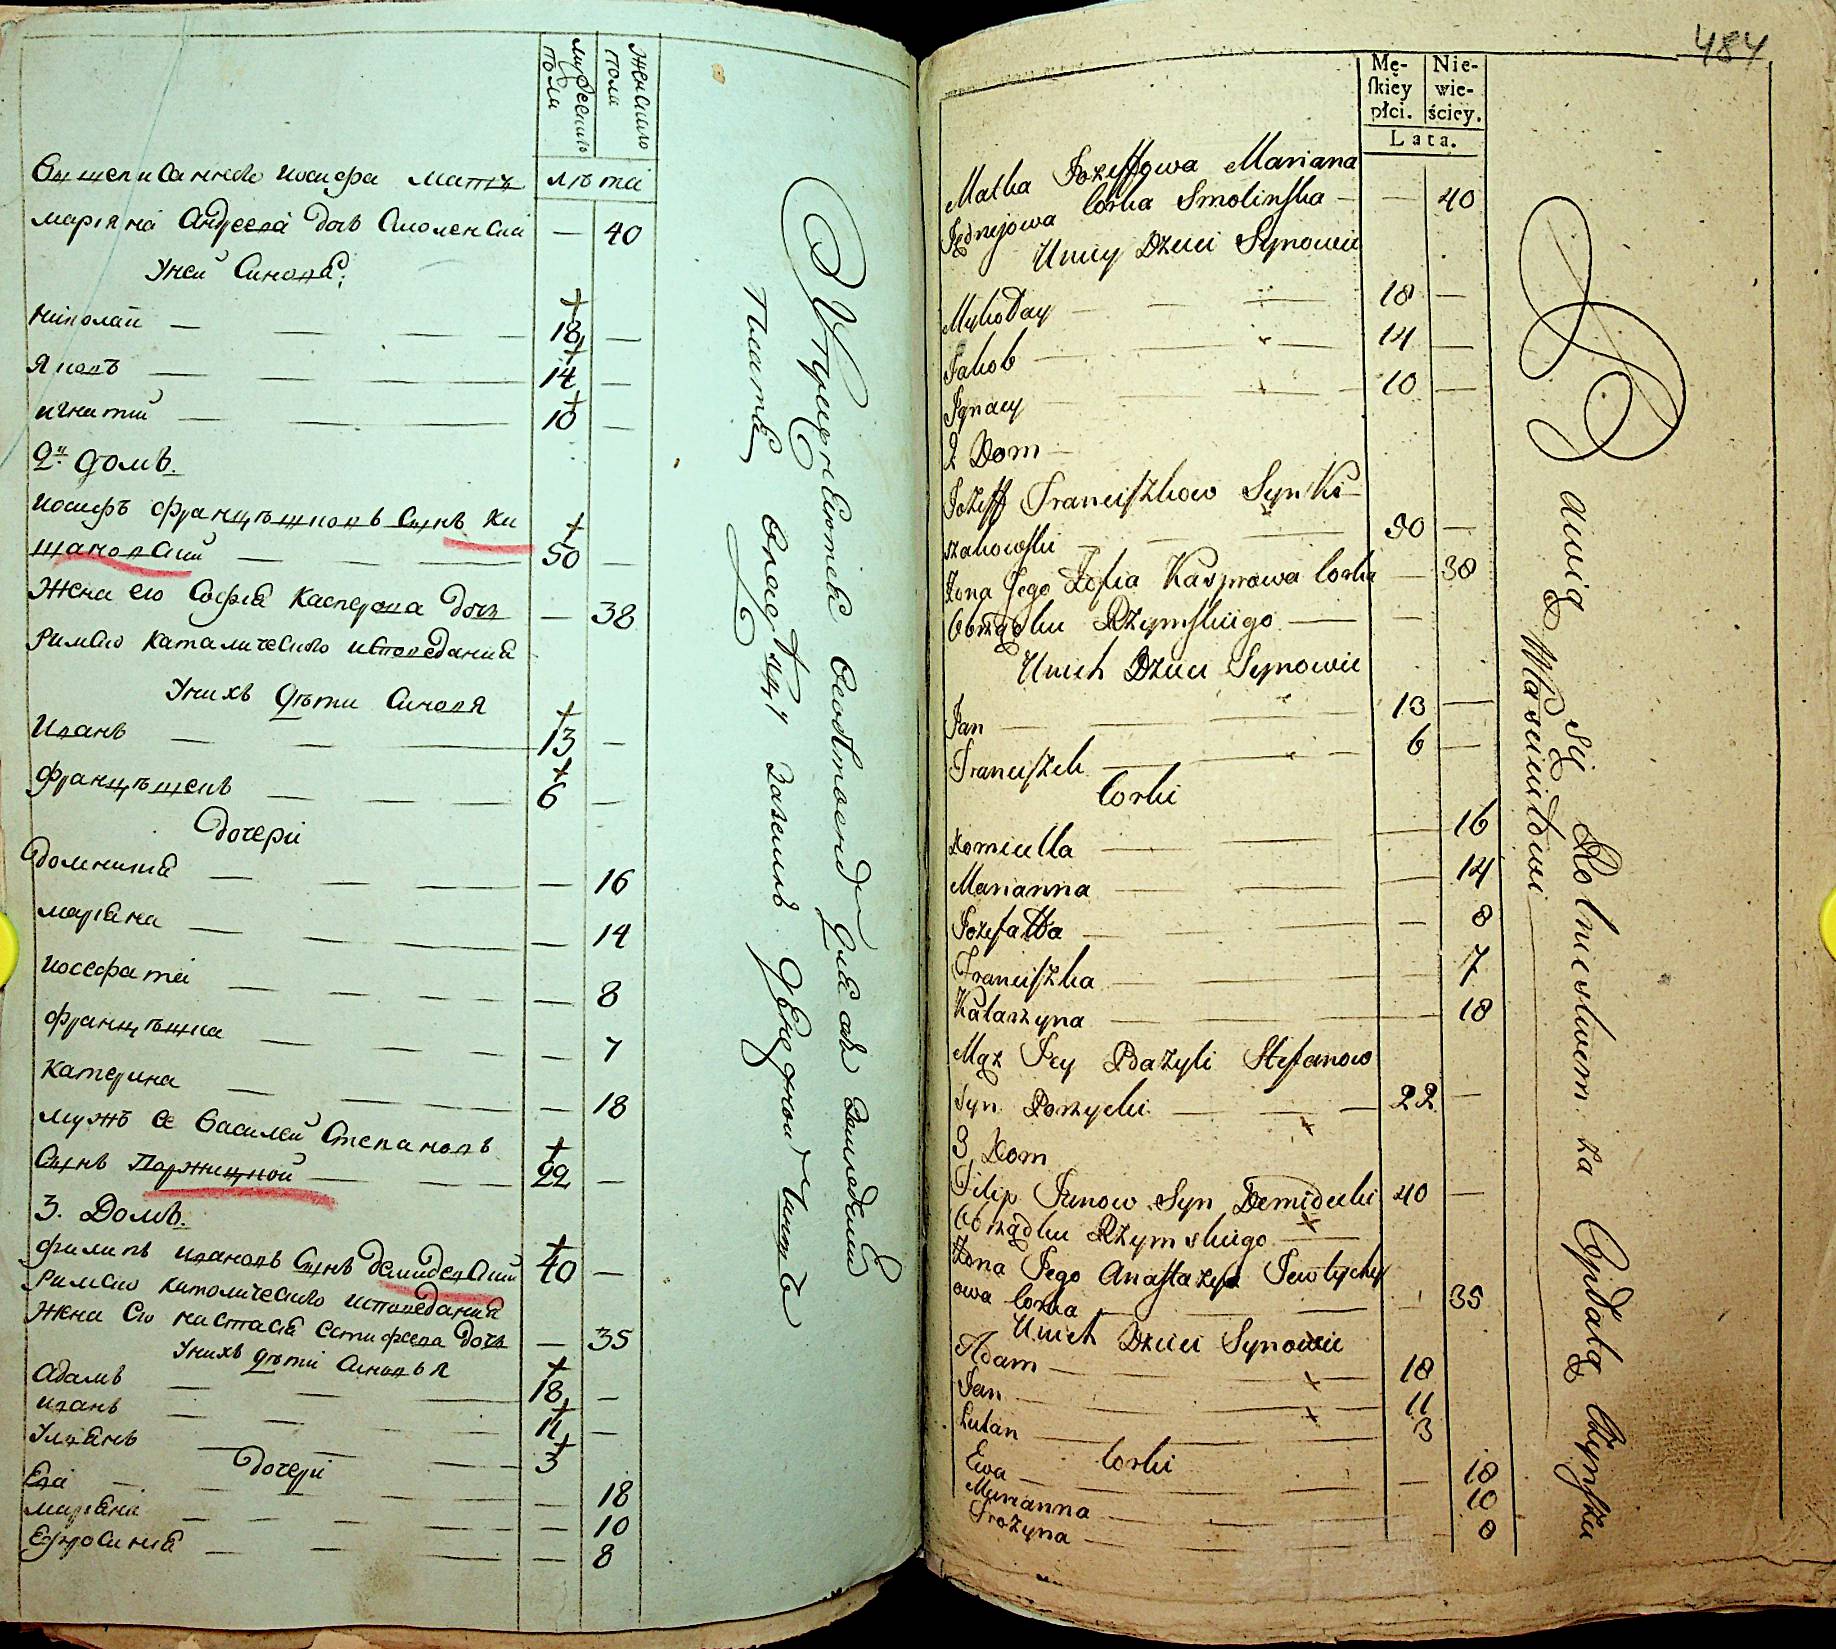 мужескаго пола
женскаго пола
лѣта
Вышеписанного иосифа мать
мариѧна Андреева дочь Смоленска — 40
Унеи Синовѧ:
николай — 18 —
Яковъ — 14 —
игнатий — 10 —
2й домъ.
иосифъ францѣшковъ Сынъ Ки
шановский — 50 —
Жена его Софиѧ Касперова дочь — 38
римско каталического исповеданиѧ
Унихъ дѣти Синовѧ
Иванъ — 13 —
францѣшекъ — 6 —
дочери
доминика — 16
мариѧна — 14
иосефата — 8
францѣшка — 7
катерина — 18
мужъ ее василей Степановъ
Сынъ Поржицкой — 22 —
3. Домъ.
филипъ ивановъ Сынъ демидецкий 40 —
римско католического исповеданиѧ
жена его настасиѧ дочь — 35
Унихъ дѣти Синовьѧ
адамъ — 18 —
иванъ — 11 —
Улиѧнъ — 3
дочери
Ева — 18
мариѧна — 10
Ефросиниѧ — 8
484
Mę-
skiey
płci.
Nie-
wie-
ściey.
Lata.
Matka Jozeffowa Mariana
Jędrzejowa Corka Smolinska — — 40
Uniey Dzieci Synowie
Mykołay — 18 —
Jakob — 14 —
Jgnacy — 10 —
2 Dom —
Jozeff Franciszkow Syn Ki-
szakowski — 50 —
Zona Jego Zofia Kasprowa Corka — 38
Obrządku Rzymskiego — —
Unich Dzieci Synowie
Jan — 13 —
Franciszek — 6 —
Corki
Domicella — 16
Marianna — 14
Jozefatta — 8
Franciszka — 7
Katarzyna — 18
Mąz Jey Bazyli Stefanow
Syn Porzycki — 22 —
3 Dom
Filip Janow Syn Demidecki 40 —
Obrządku Rzymskiego —
Zona Jego Anastazya Jewtychy
owa Corka — 35
Unich Dzieci Synowie
Adam — 18
Jan — 11
Julian — 3
Corki
Ewa — 18
Marianna — 10
Frozyna — 8
się Rolnictwem za Opłatą Czynszu
Włascicielowi